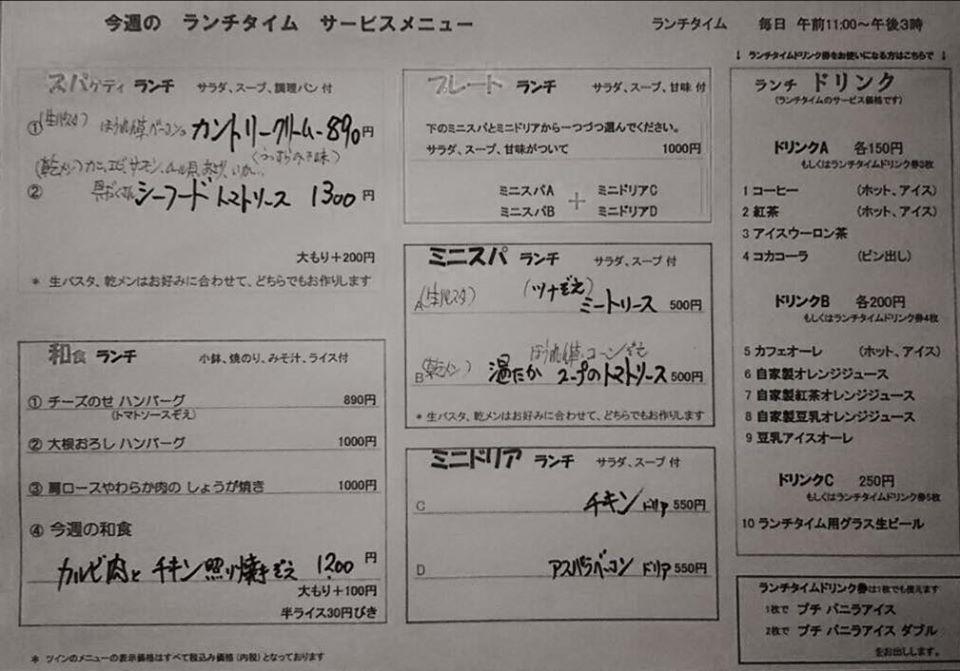 今週の ランチタイム サービスメニュー
ランチタイム 毎日 午前11:00～午後3時
↓ ランチタイムドリンク券をお使いになる方はこちらで ↓
スパゲティ ランチ サラダ、スープ、調理パン 付
(生パスタ) ほうれん草 ベーコンの
① カントリークリーム 890円
(うっすらみそ味)
(乾メン) カニ、エビ、サーモン、ムール貝、あさり、いか
② 具だくさん シーフード トマトソース 1300円
大もり＋200円
* 生パスタ、乾メンはお好みに合わせて、どちらもお作りします
和食 ランチ 小鉢、焼のり、みそ汁、ライス付
① チーズのせ ハンバーグ 890円
(トマトソースぞえ)
② 大根おろし ハンバーグ 1000円
③ 肩ロースやわらか肉の しょうが焼き 1000円
④ 今週の和食
カルビ肉と チキン 照り焼きぞえ 1200円
大もり＋100円
半ライス30円びき
* ツインのメニューの表示価格はすべて税込み価格(内税)となっております
プレート ランチ サラダ、スープ、甘味 付
下のミニスパとミニドリアから一つづつ選んでください。
サラダ、スープ、甘味がついて 1000円
ミニスパA ＋ ミニドリアC
ミニスパB ミニドリアD
ミニスパ ランチ サラダ、スープ 付
(生パスタ) (ツナぞえ)
A ミートソース 500円
ほうれん草、コーンぞえ
B (乾メン) 温たか スープのトマトソース 500円
* 生パスタ、乾メンはお好みに合わせて、どちらもお作りします
ミニドリア ランチ サラダ、スープ 付
C チキン ドリア 550円
D アスパラベーコン ドリア 550円
ランチ ドリンク
(ランチタイムのサービス価格です)
ドリンクA 各150円
もしくはランチタイムドリンク券3枚
1 コーヒー (ホット、アイス)
2 紅茶 (ホット、アイス)
3 アイスウーロン茶
4 コカコーラ (ビン出し)
ドリンクB 各200円
もしくはランチタイムドリンク券4枚
5 カフェオーレ (ホット、アイス)
6 自家製オレンジジュース
7 自家製紅茶オレンジジュース
8 自家製豆乳オレンジジュース
9 豆乳アイスオーレ
ドリンクC 250円
もしくはランチタイムドリンク券5枚
10 ランチタイム用グラス生ビール
ランチタイムドリンク券は1枚でも使えます
1枚で プチ バニラアイス
2枚で プチ バニラアイス ダブル
をお出しします。